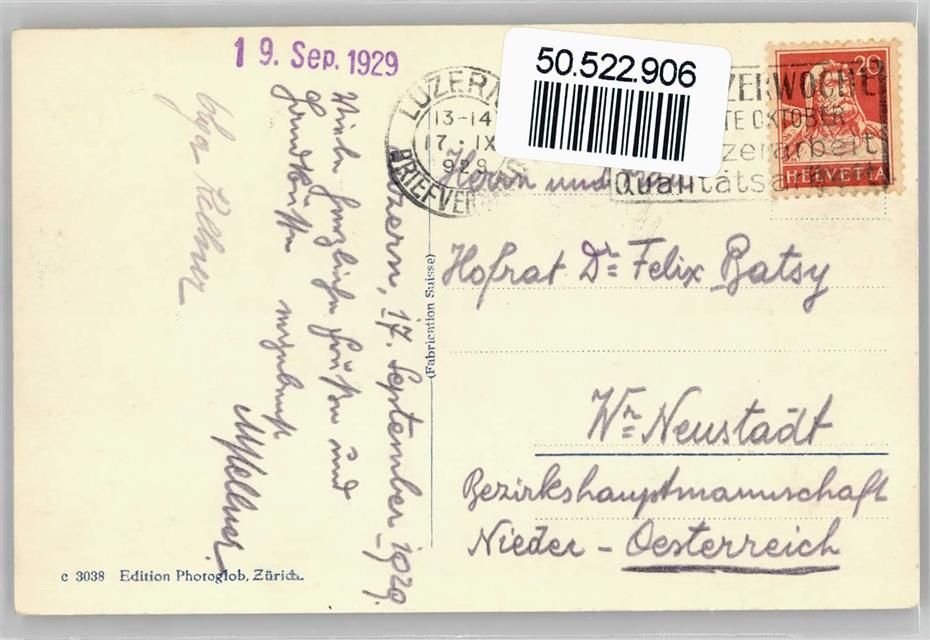 19. Sep. 1929
50.522.906
LUZERN
13-14
17. IX
929
BRIEFVER
ZERWOCHE
TE OKTOBER
zerarbeit
Qualitätsarbeit
20
HELVETIA
Luzern, 17. September 1929.
Viele herzliche Grüße und
Handküsse
Kellner
MKellner
Herrn und Frau
Hofrat Dr. Felix Batsy
Wr. Neustadt
Bezirkshauptmannschaft
Nieder-Oesterreich
(Fabrication Suisse)
c 3038 Edition Photoglob, Zürich.